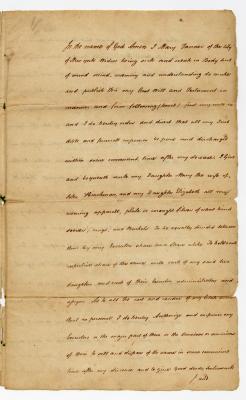 In the name of God Amen I Mary Tanner of the City
of New York Widow being sick and weak in Body but
of sound mind, memory and understanding do make
and publish this my last Will and Testament in
manner and form following (that is) first my will is
and I do hereby order and direct that all my Just
debts and funeral expences be paid and discharged
within some convenient time after my decease. I Give
and bequeath unto my Daughter Mary the wife of
John and my Daughter Elizabeth all my
wearing apparel, plate or wrought Silver of what kind
soever, rings, and to be equally divided between
them my share and share alike To hold
respective share of the same unto each of my said two
daughters and each of their executors administrators and
assigns As to all the rest and residue of my Estate
personal I do hereby Authorize and impower my
Executors or the major part of them or the survivors or survivor
of them to sell and dispose of the same in some convenient
time after my decease and to Give Good deeds